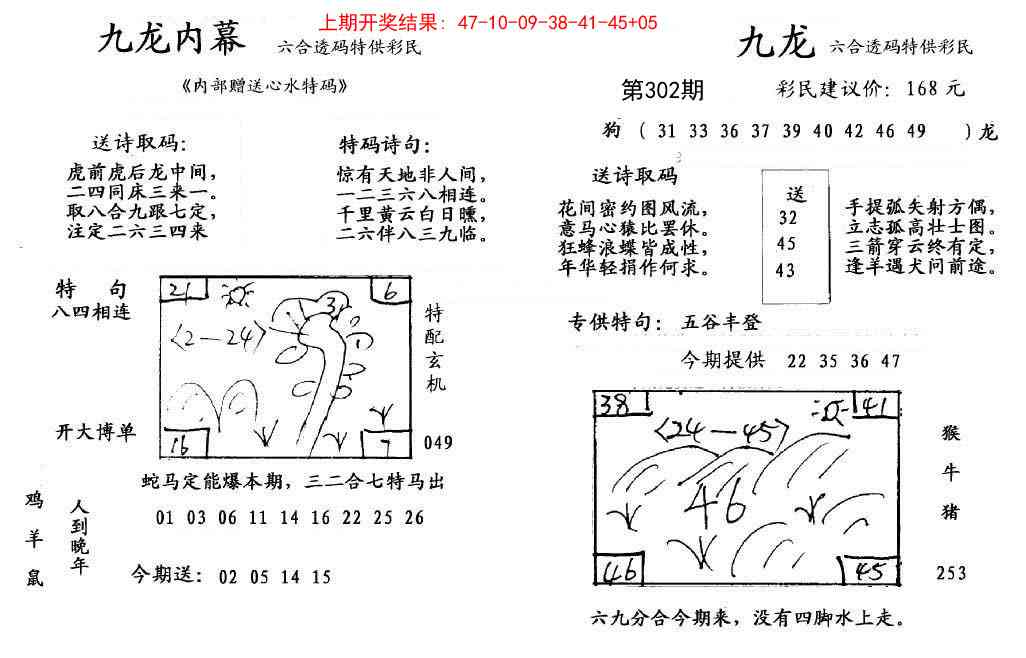 上期开奖结果：47-10-09-38-41-45+05
九龙内幕 六合透码特供彩民
《内部赠送心水特码》
送诗取码：
虎前虎后龙中间，
二四同床三来一。
取八合九跟七定，
注定二六三四来
特码诗句：
惊有天地非人间，
一二三六八相连。
千里黄云白日曛，
二六伴八三九临。
特 句
八四相连
开大博单
21
6
3
<2—24>
16
7
特配玄机
049
蛇马定能爆本期，三二合七特马出
鸡羊鼠
人到晚年
01 03 06 11 14 16 22 25 26
今期送：02 05 14 15
九龙 六合透码特供彩民
第302期 彩民建议价：168元
狗（31 33 36 37 39 40 42 46 49 ）龙
送诗取码
花间密约图风流，
意马心猿比罢休。
狂蜂浪蝶皆成性，
年华轻捐作何求。
送
32
45
43
手提弧矢射方偶，
立志孤高壮士图。
三箭穿云终有定，
逢羊遇犬问前途。
专供特句：五谷丰登
今期提供 22 35 36 47
38
41
<24—45>
46
46
45
猴
牛
猪
253
六九分合今期来，没有四脚水上走。